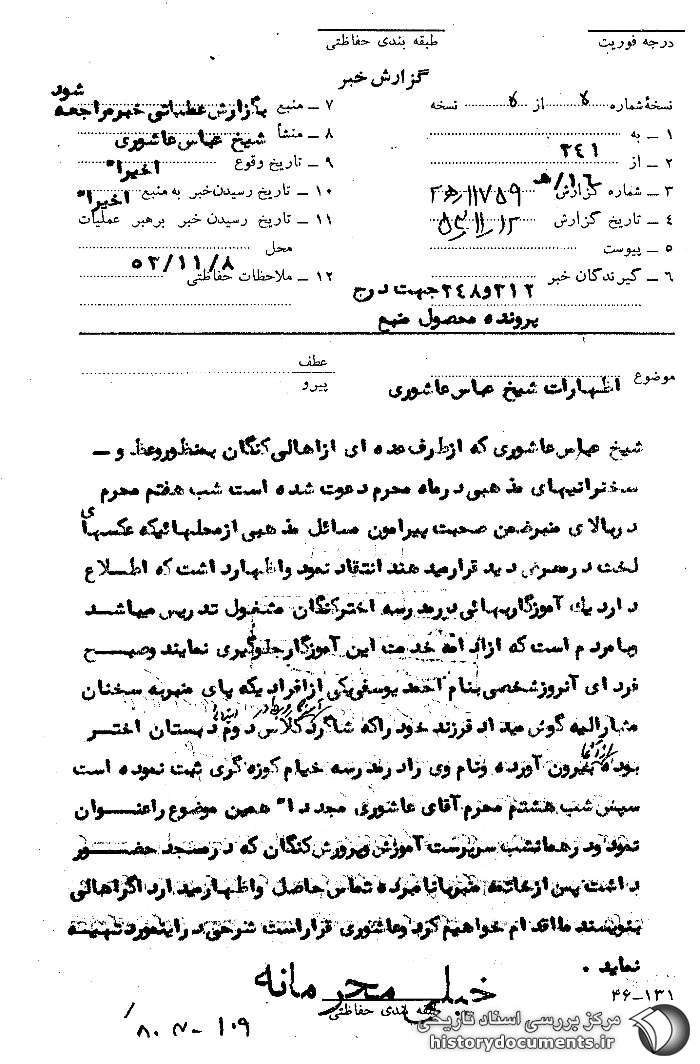 درجه فوریت
طبقه بندی حفاظتی
گزارش خبر
نسخهٔ شماره ۵ از ۵ نسخه
۱ ــ به
۲ ــ از ۲۴۱
۳ ــ شماره گزارش ۱۶/هـ
۴ ــ تاریخ گزارش
۵ ــ پیوست
۶ ــ گیرندگان خبر ۳۱۲ و ۲۴۸ جهت درج
پرونده محصول منبع
۷ ــ منبع بگزارش عملیاتی خبر مراجعه شود
۸ ــ منشأ شیخ عباس عاشوری
۹ ــ تاریخ وقوع اخیرا"
۱۰ ــ تاریخ رسیدن خبر به منبع اخیرا"
۱۱ ــ تاریخ رسیدن خبر برهبر عملیات
محل ۵۳/۱۱/۸
۱۲ ــ ملاحظات حفاظتی
موضوع اظهارات شیخ عباس عاشوری
عطف
پیرو
شیخ عباس عاشوری که از طرف عده ای از اهالی کنگان بمنظور وعظ و ــ
سخنرانیهای مذهبی در ماه محرم دعوت شده است شب هفتم محرم
در بالای منبر ضمن صحبت پیرامون مسائل مذهبی از محلهائیکه عکسهای
لخت در معرض دید قرار میدهند انتقاد نمود و اظهار داشت که اطلاع
دارد یک آموزگار بهائی در مدرسه اختر کنگان مشغول تدریس میباشد
و بامردم است که از ادامه خدمت این آموزگار جلوگیری نمایند و صبح
فردای آنروز شخصی بنام احمد یوسفی یکی از افرادیکه پای منبر به سخنان
مشارالیه گوش میداد فرزند خود را که شاگرد کلاس دوم دبستان اختر
بوده از آنجا بیرون آورده و نام وی را در مدرسه خیام کوزه گری ثبت نموده است
سپس شب هشتم محرم آقای عاشوری مجددا" همین موضوع را عنوان
نمود و در همانشب سرپرست آموزش و پرورش کنگان که در مسجد حضور
داشت پس از خاتمه منبر با نامبرده تماس حاصل و اظهار میدارد اگر اهالی
بنویسند ما اقدام خواهیم کرد و عاشوری قرار است شرحی در اینمورد تهیه
نماید .
خیلی محرمانه
طبقه بندی حفاظتی
۴۶ــ۱۳۱
مرکز بررسی اسناد تاریخی
historydocuments.ir